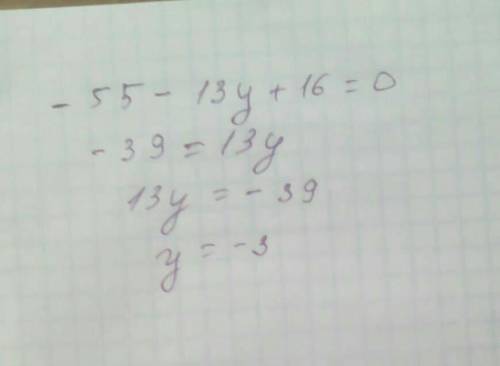 - 55 - 13y + 16 = 0
- 39 = 13y
13y = - 39
y = -3